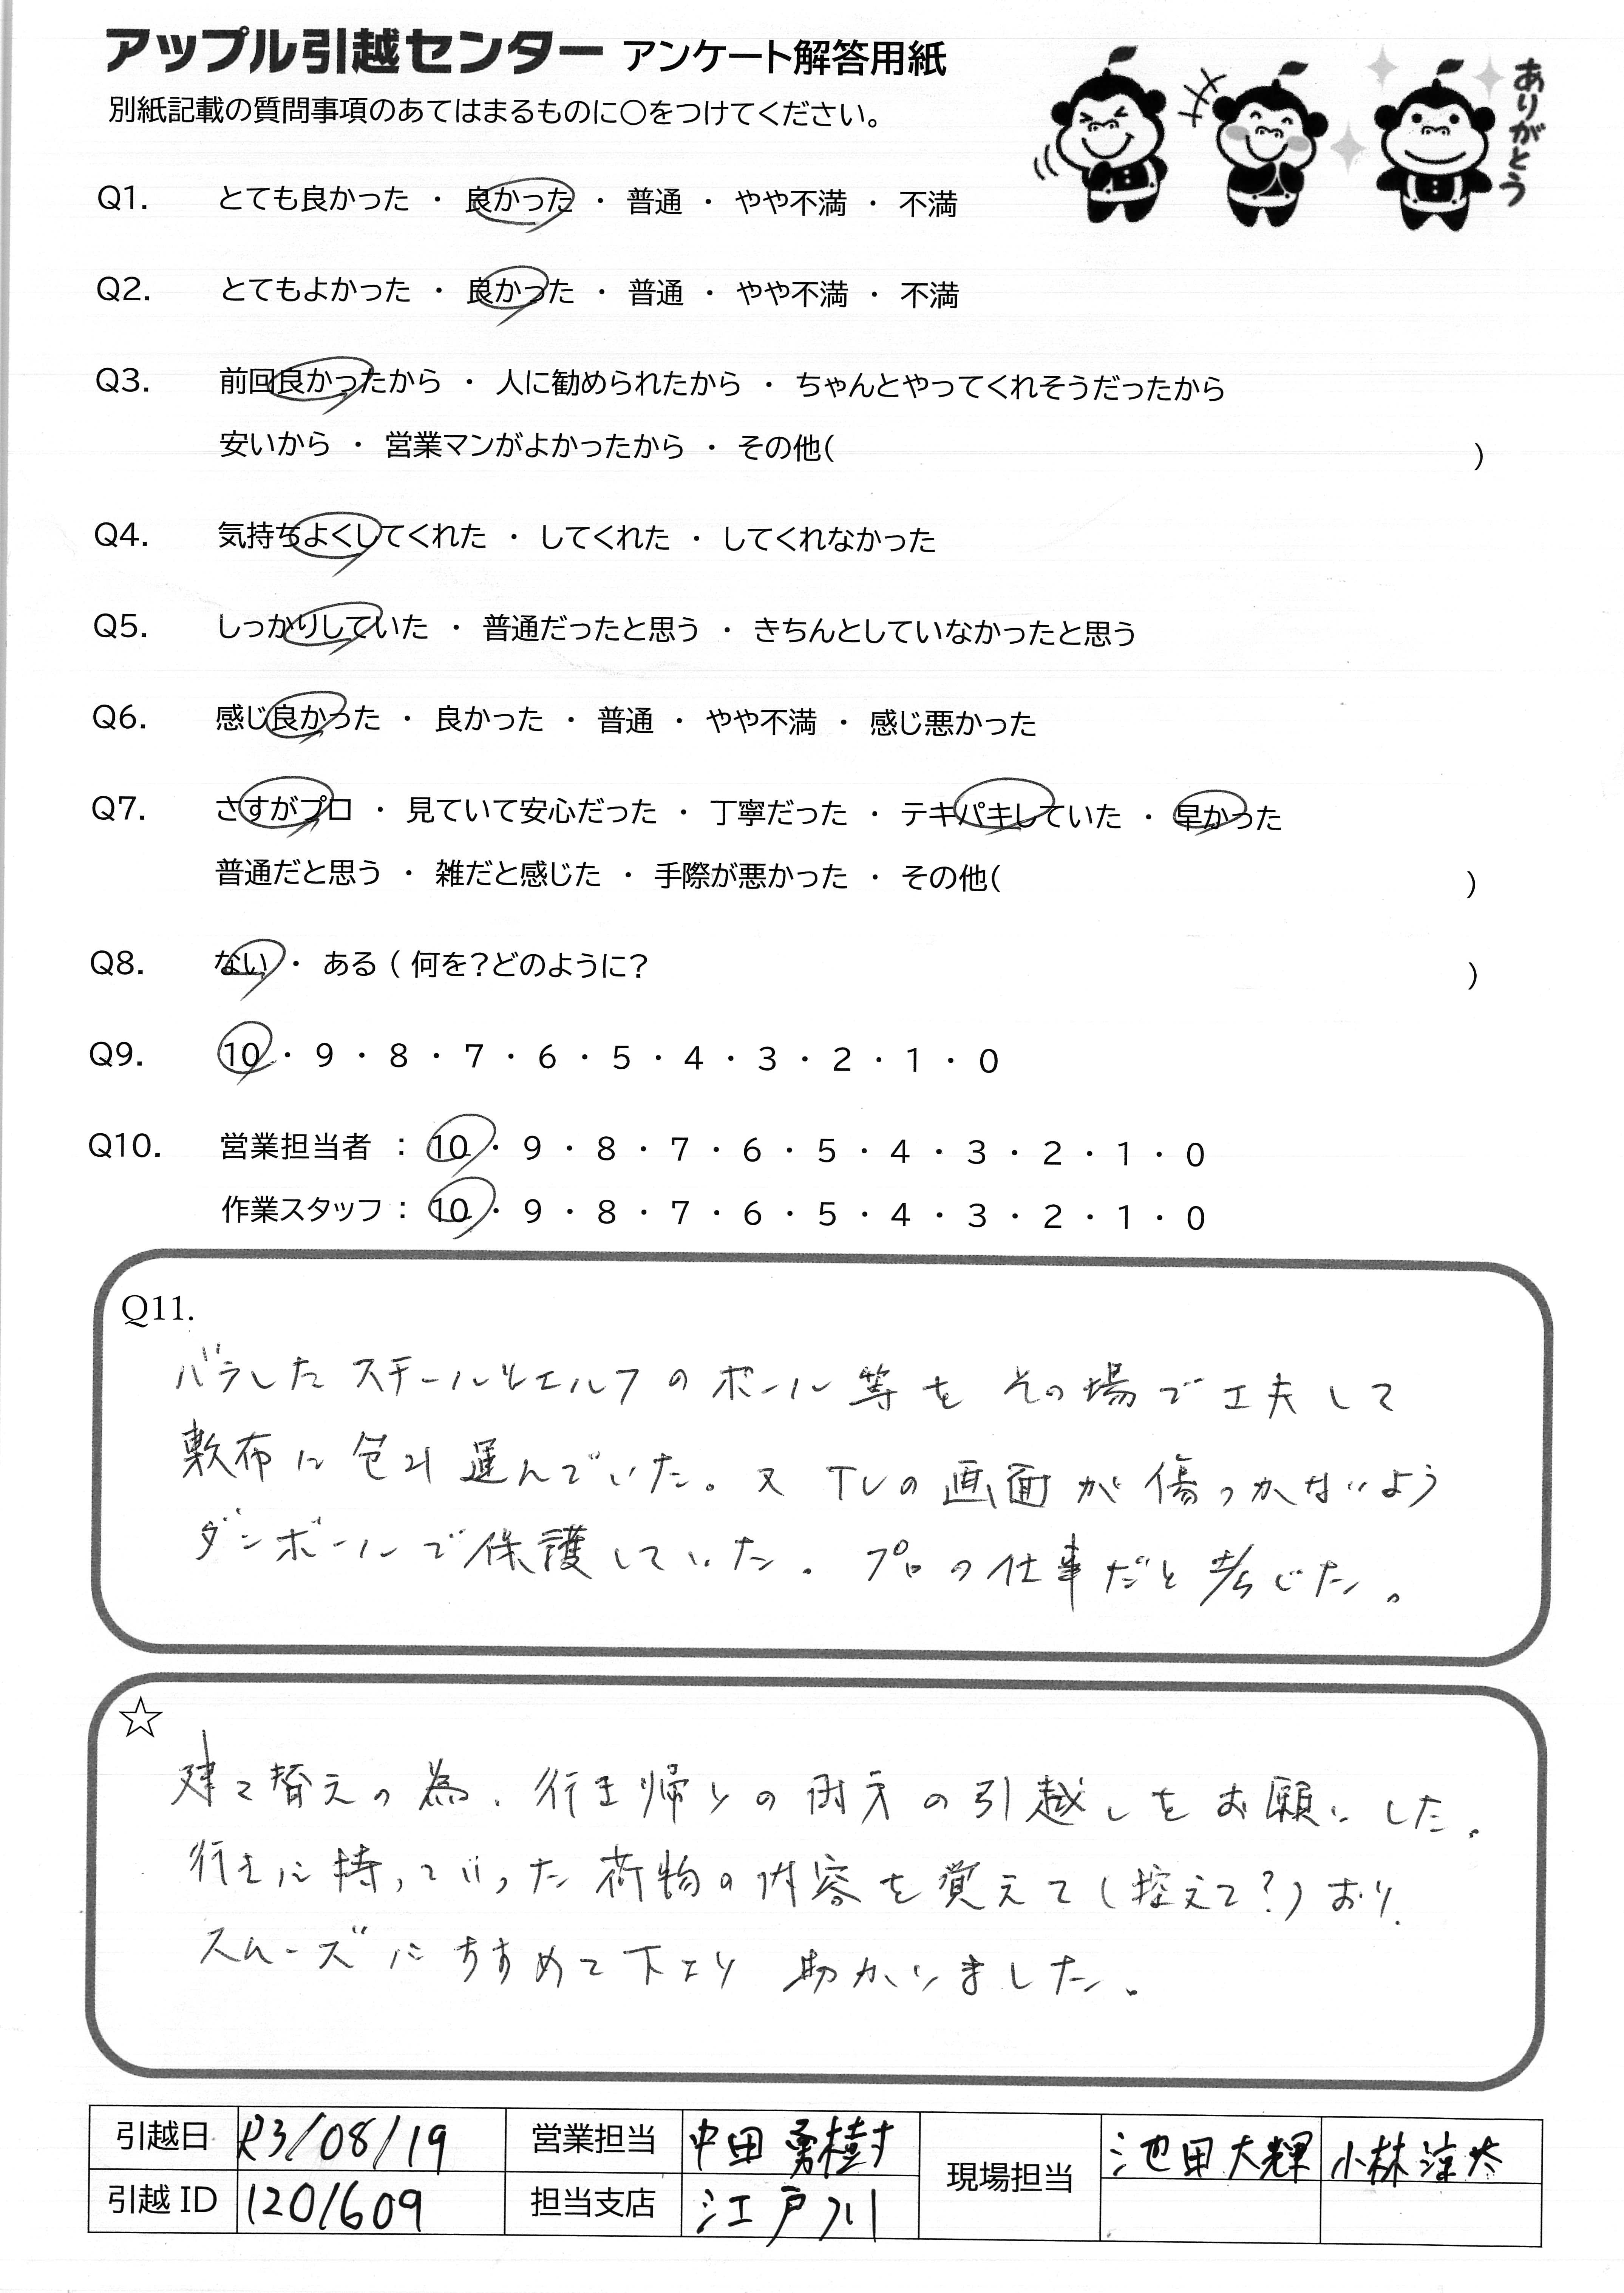 アップル引越センター アンケート解答用紙
別紙記載の質問事項のあてはまるものに○をつけてください。
ありがとう
Q1. とても良かった ・ 良かった ・ 普通 ・ やや不満 ・ 不満
Q2. とてもよかった ・ 良かった ・ 普通 ・ やや不満 ・ 不満
Q3. 前回良かったから ・ 人に勧められたから ・ ちゃんとやってくれそうだったから
安いから ・ 営業マンがよかったから ・ その他( )
Q4. 気持ちよくしてくれた ・ してくれた ・ してくれなかった
Q5. しっかりしていた ・ 普通だったと思う ・ きちんとしていなかったと思う
Q6. 感じ良かった ・ 良かった ・ 普通 ・ やや不満 ・ 感じ悪かった
Q7. さすがプロ ・ 見ていて安心だった ・ 丁寧だった ・ テキパキしていた ・ 早かった
普通だと思う ・ 雑だと感じた ・ 手際が悪かった ・ その他( )
Q8. ない ・ ある ( 何を?どのように? )
Q9. 10 ・ 9 ・ 8 ・ 7 ・ 6 ・ 5 ・ 4 ・ 3 ・ 2 ・ 1 ・ 0
Q10. 営業担当者 : 10 ・ 9 ・ 8 ・ 7 ・ 6 ・ 5 ・ 4 ・ 3 ・ 2 ・ 1 ・ 0
作業スタッフ : 10 ・ 9 ・ 8 ・ 7 ・ 6 ・ 5 ・ 4 ・ 3 ・ 2 ・ 1 ・ 0
Q11.
バラしたスチールシェルフのポール等をその場で工夫して
敷布に包み運んでいた。又TVの画面が傷つかないよう
ダンボールで保護していた。プロの仕事だと感じた。
☆
建て替えの為、行き帰りの両方の引越しをお願いした。
行きに持っていった荷物の内容を覚えて(控えて?)おり、
スムーズにすすめて下さり助かりました。
引越日 R3/08/19 営業担当 中田勇樹 現場担当 池田大輝 小林涼太
引越ID 1201609 担当支店 江戸川